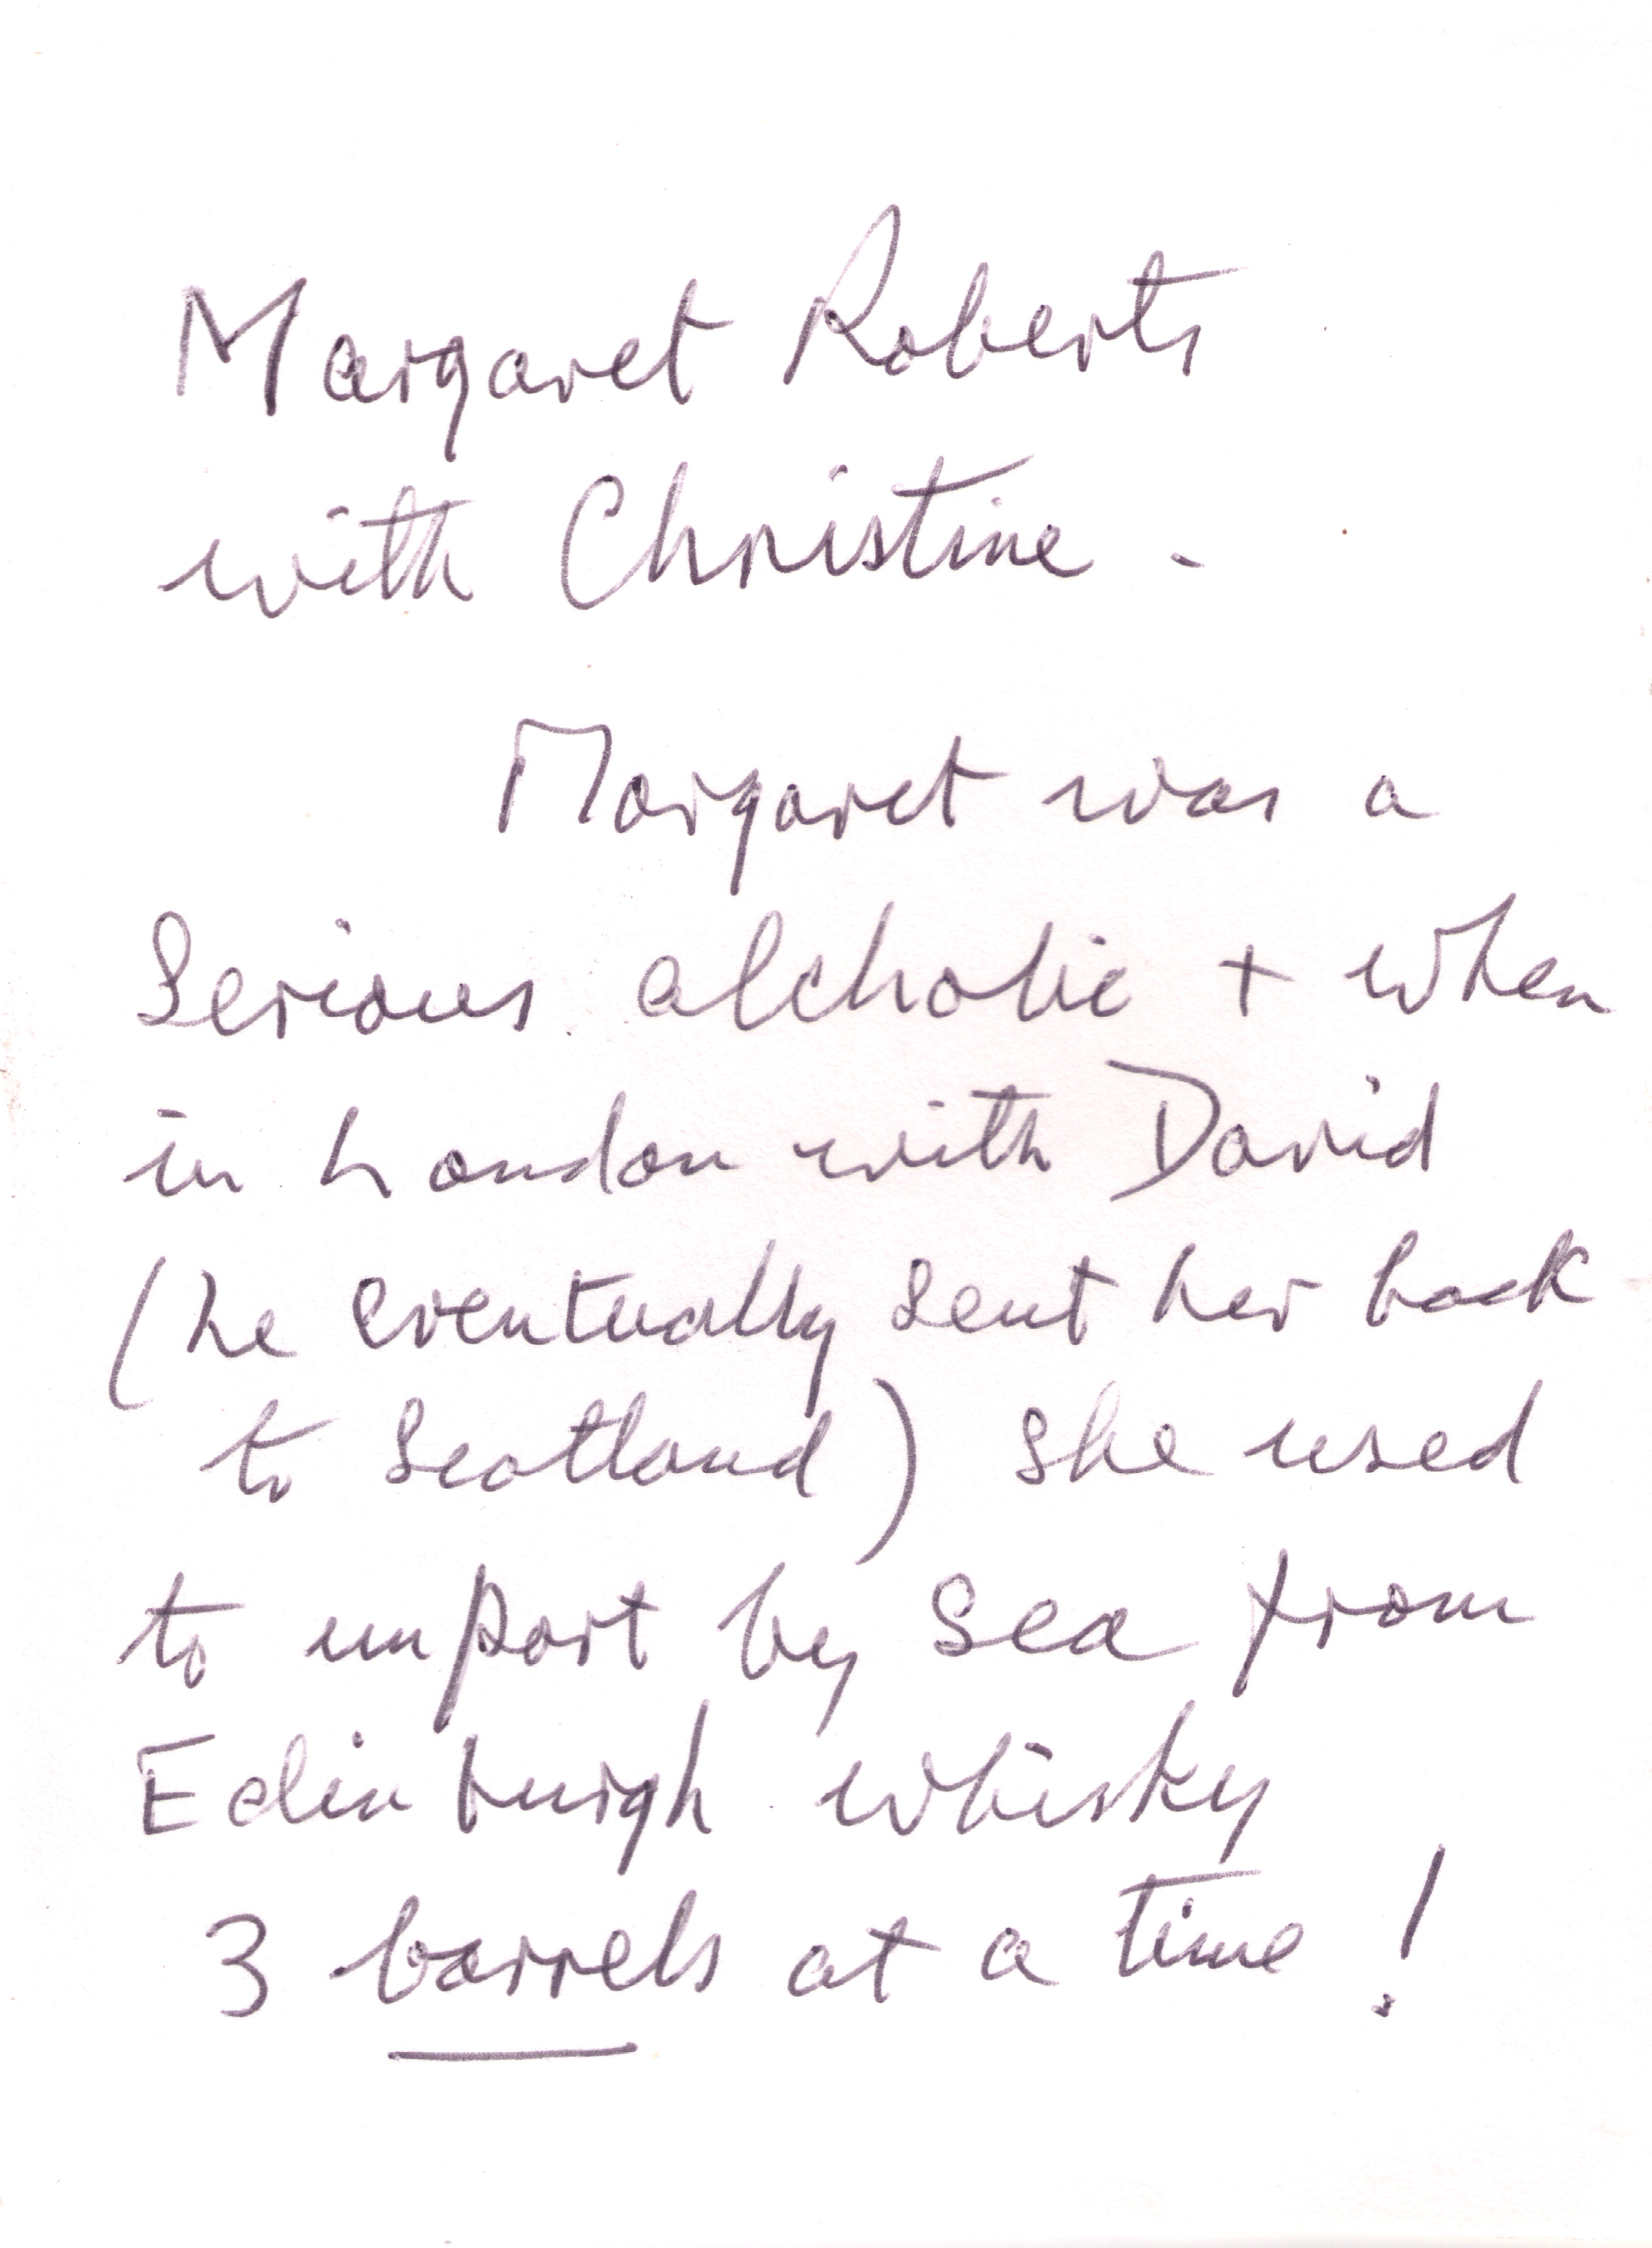 Margaret Roberts
with Christine -
Margaret was a
Serious alcholic + when
in London with David
(he eventually sent her back
to Scotland) she used
to import by sea from
Edinburgh whisky
3 barrels at a time!